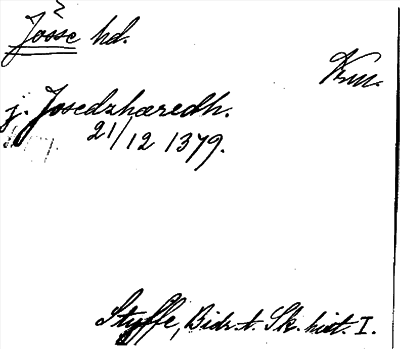 Jösse hd.
Vrm.
j. Josedzhæredh.
21/12 1379.
Styffe, Bidr. t. Sk. hist. I.